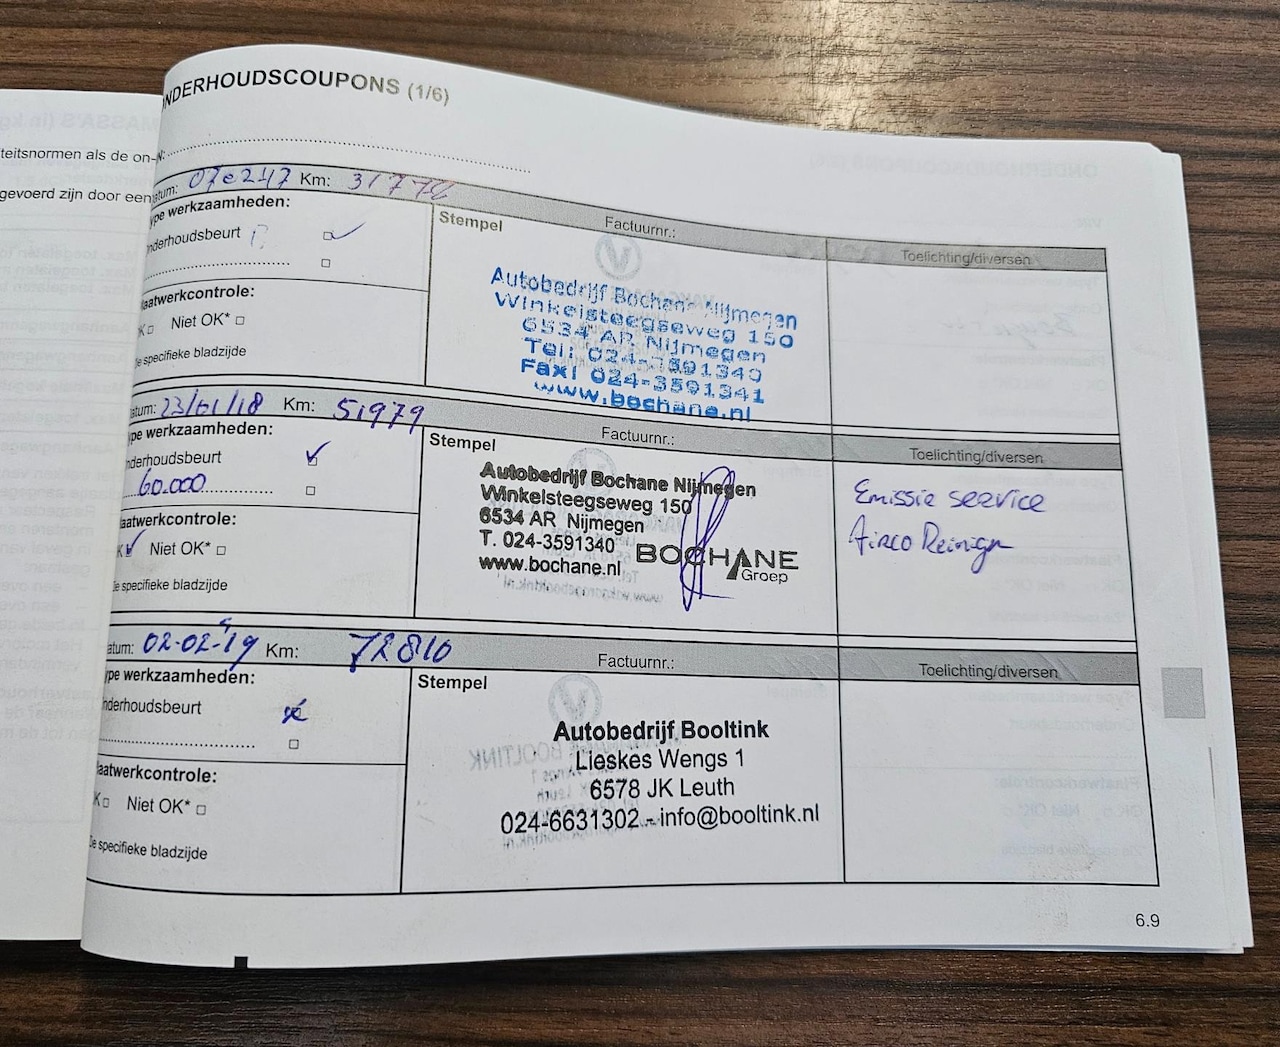 NDERHOUDSCOUPONS (1/6)
teitsnormen als de on-
gevoerd zijn door een
N:
atum: Km: 31778
ype werkzaamheden:
nderhoudsbeurt
Stempel
Factuurnr.:
Toelichting/diversen
Autobedrijf Bochane Nijmegen
Winkelsteegseweg 150
6534 AR Nijmegen
Tel: 024-3591340
Fax: 024-3591341
www.bochane.nl
laatwerkcontrole:
K Niet OK*
ie specifieke bladzijde
atum: 23/01/18 Km: 51979
ype werkzaamheden:
nderhoudsbeurt
60.000
Stempel
Factuurnr.:
Toelichting/diversen
Autobedrijf Bochane Nijmegen
Winkelsteegseweg 150
6534 AR Nijmegen
T. 024-3591340
www.bochane.nl
BOCHANE
Groep
Emissie service
Airco Reinign
laatwerkcontrole:
K Niet OK*
ie specifieke bladzijde
atum: 02-02-'19 Km: 72810
ype werkzaamheden:
nderhoudsbeurt
Stempel
Factuurnr.:
Toelichting/diversen
Autobedrijf Booltink
Lieskes Wengs 1
6578 JK Leuth
024-6631302 - info@booltink.nl
laatwerkcontrole:
K Niet OK*
ie specifieke bladzijde
6.9